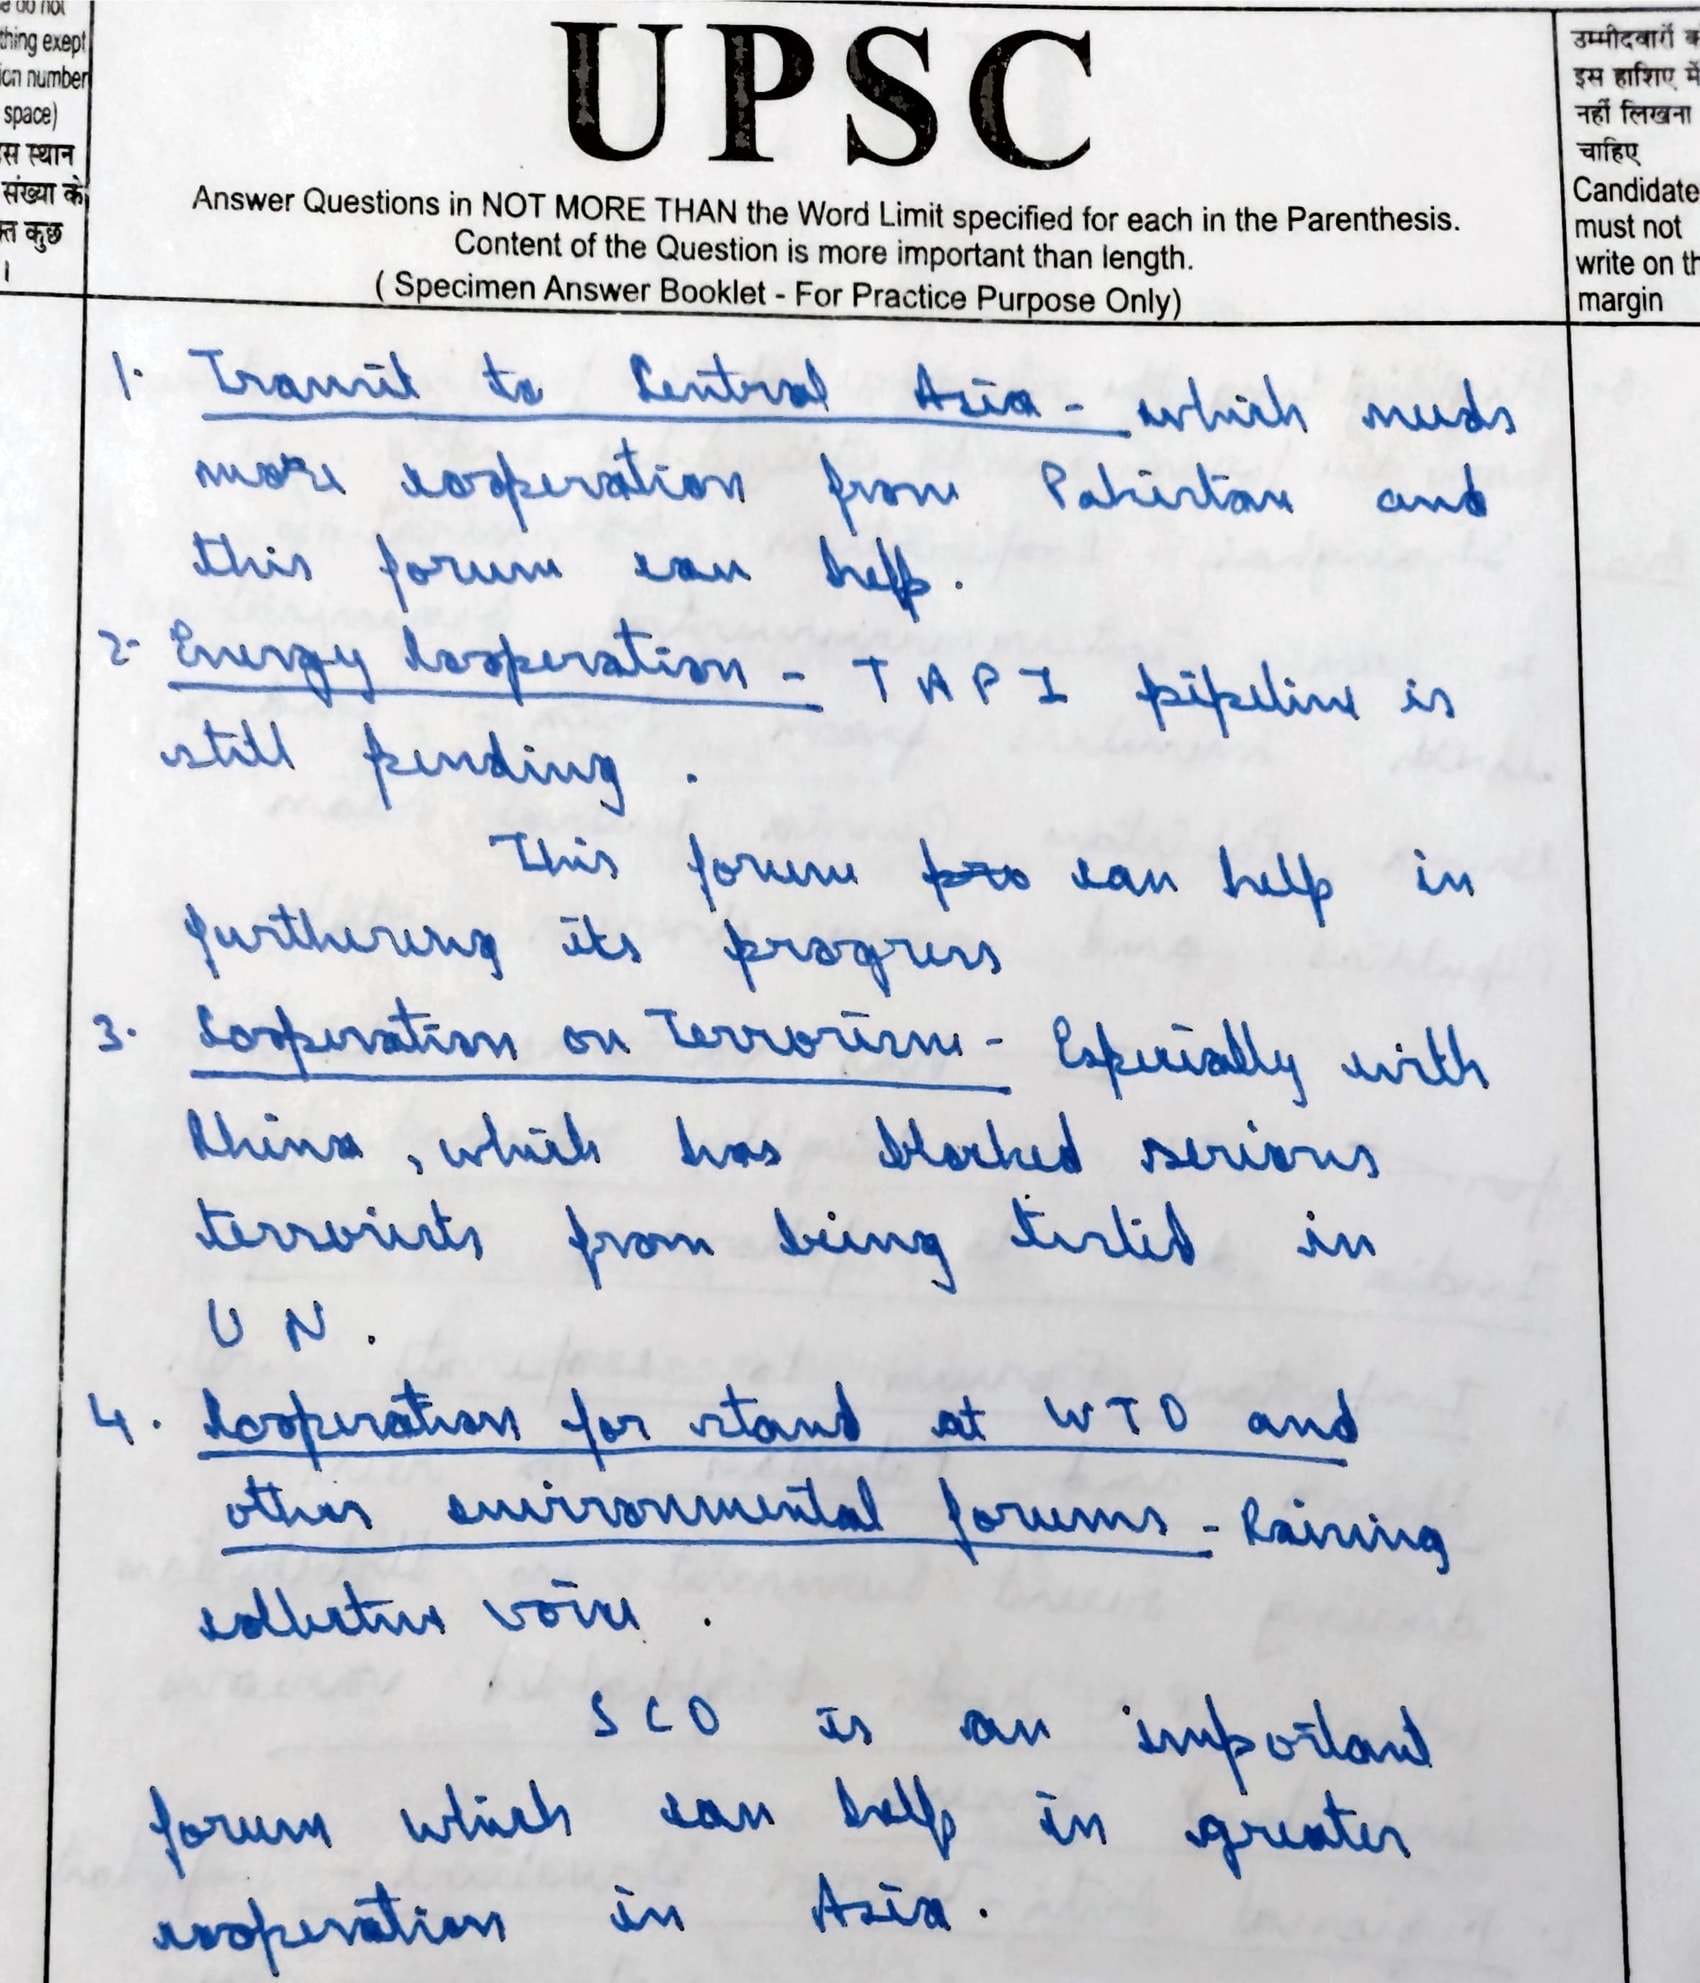 e do not
thing exept
ion number
space)
स स्थान
संख्या के
क्त कुछ
।
UPSC
Answer Questions in NOT MORE THAN the Word Limit specified for each in the Parenthesis.
Content of the Question is more important than length.
( Specimen Answer Booklet - For Practice Purpose Only)
उम्मीदवारों क
इस हाशिए में
नहीं लिखना
चाहिए
Candidate
must not
write on th
margin
1. Transit to Central Asia - which needs
more cooperation from Pakistan and
this forum can help.
2- Energy Cooperation - TAPI pipeline is
still pending.
This forum can help in
furthering its progress
3. Cooperation on Terrorism - Especially with
China, which has blocked serious
terrorists from being in
UN.
4. Cooperation for stand at WTO and
other environmental forums - Raising
collective voice.
SCO is an important
forum which can help in greater
cooperation in Asia.